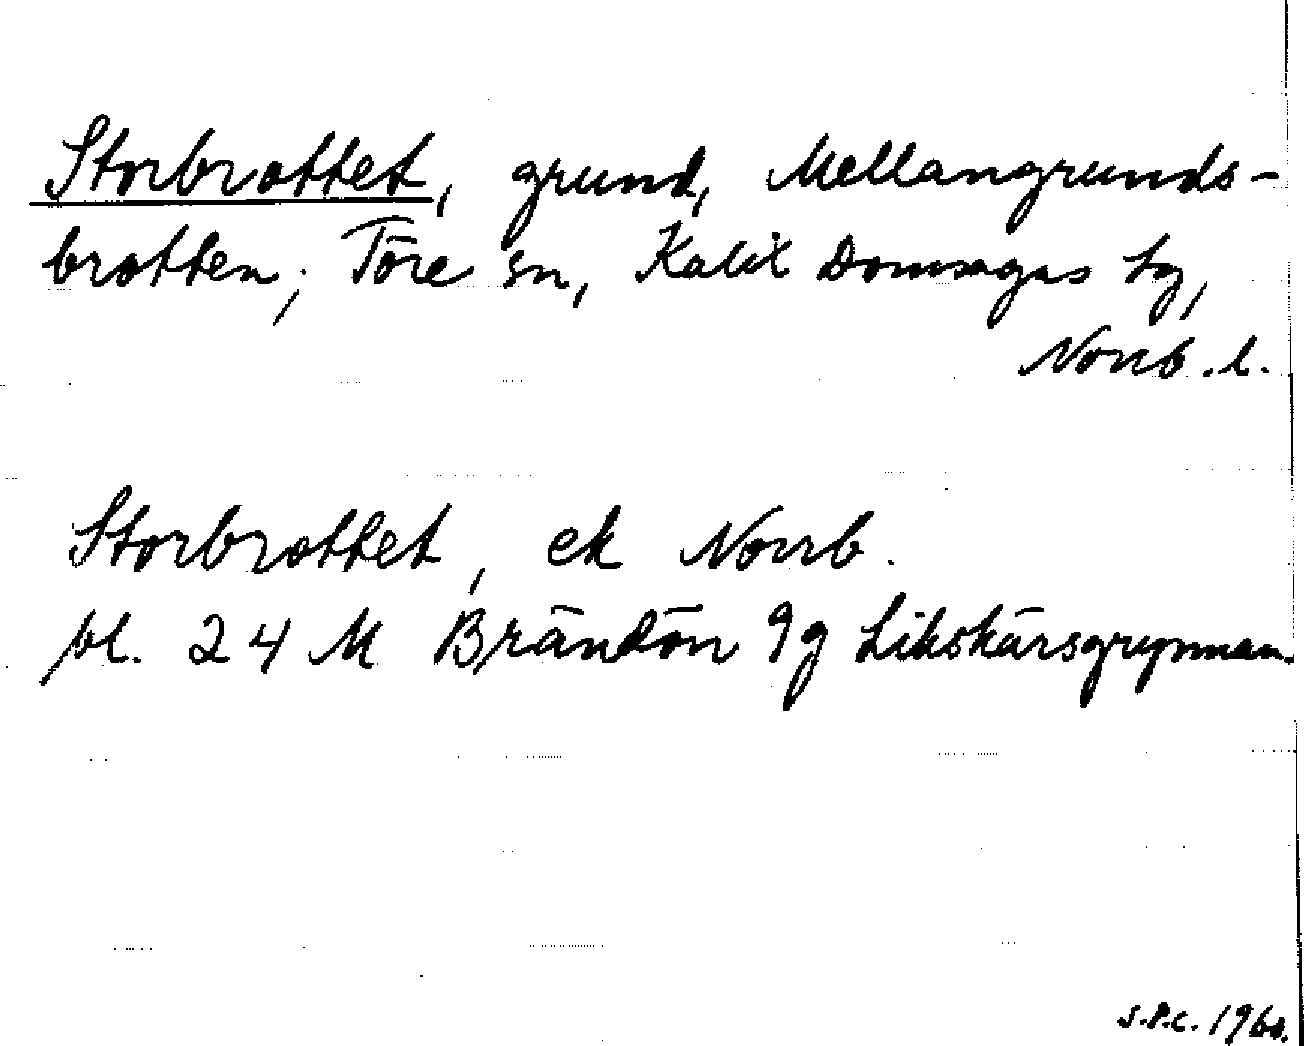 Storbrottet, grund, Mellangrunds-
brotten; Töre sn, Kalix Domsagas tg,
Norrb. l.
Storbrottet, ek Norrb.
bl. 24 M Brändön 9g Likskärsgrynnan.
S.P.C. 1960.